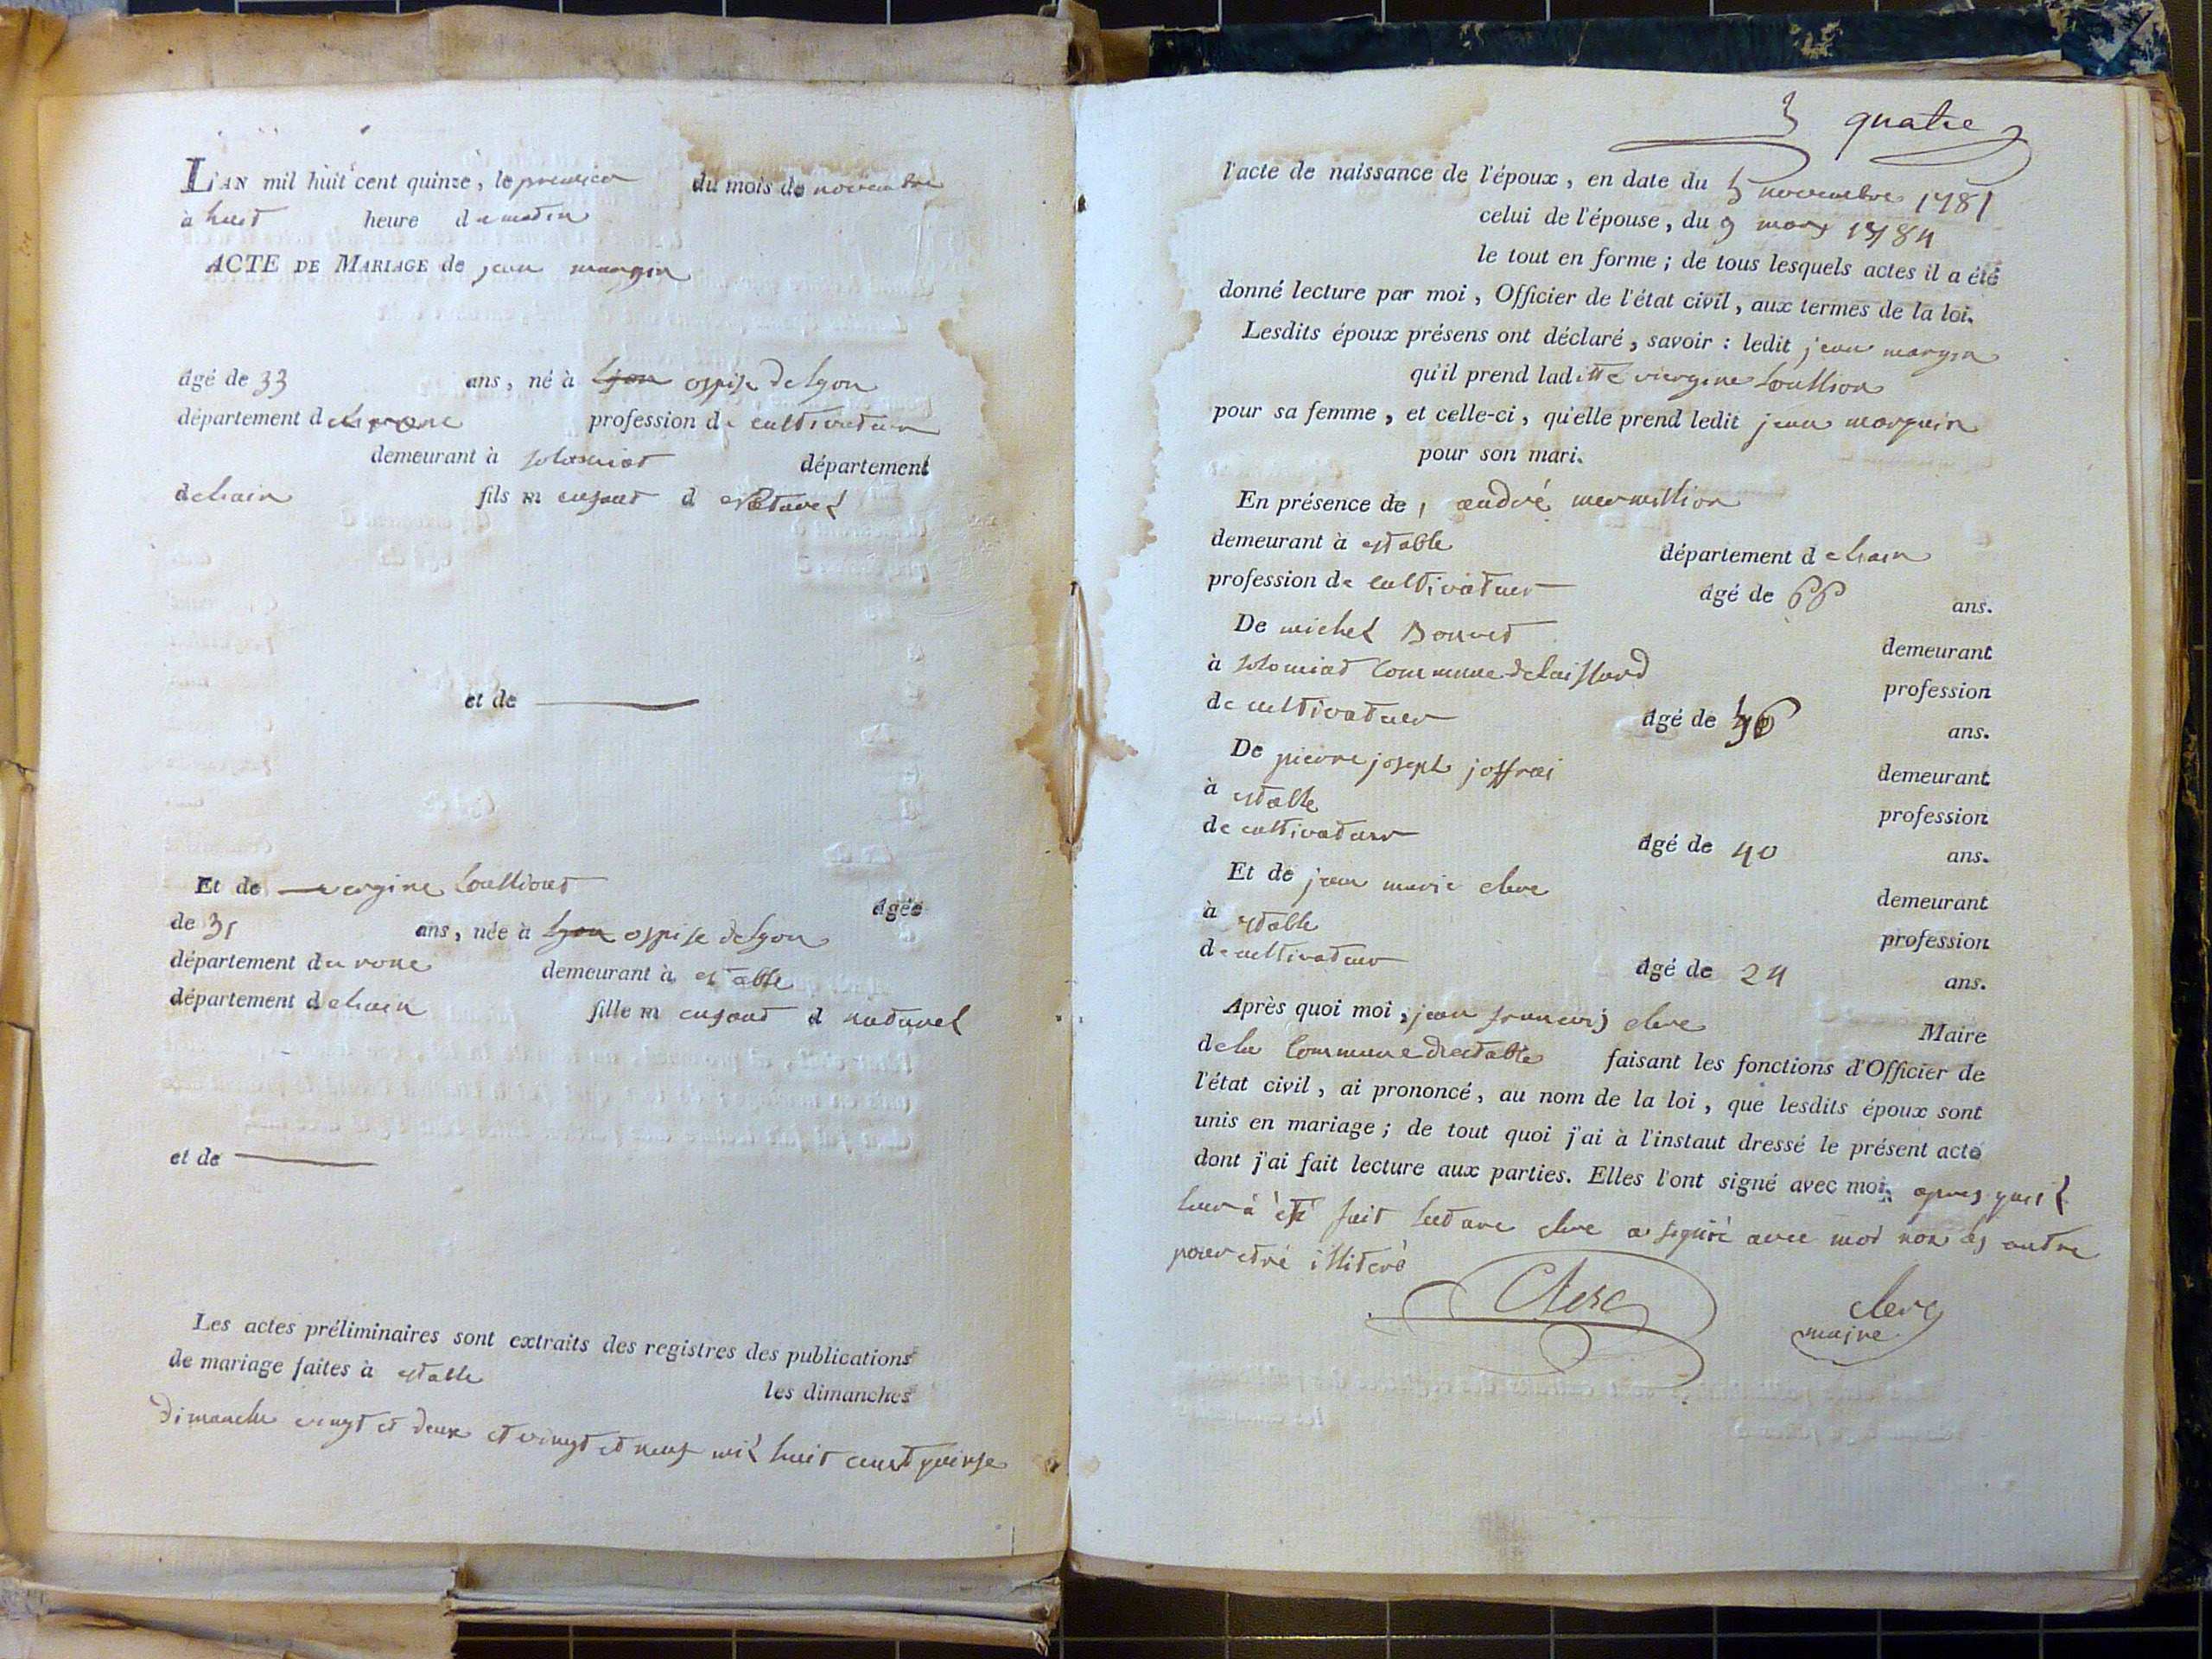 L'AN mil huit cent quinze, le premier du mois de novembre
à huit heure du matin
ACTE DE MARIAGE de jean mangin
âgé de 33 ans, né à lyon ospise de lyon
département du rone profession de cultivateur
demeurant à solomiat département
de lain fils m enfant d natturel
et de
Et de virgine
âgée
de 31 ans, née à lyon ospise de lyon
département du rone demeurant à estable
département de lain fille m enfant d naturel
et de
Les actes préliminaires sont extraits des registres des publications
de mariage faites à estable les dimanches
dimanche vingt et deux et vingt et neuf mil huit cent quinse
quatre
l'acte de naissance de l'époux, en date du 5 novembre 1781
celui de l'épouse, du 9 mars 1784
le tout en forme; de tous lesquels actes il a été
donné lecture par moi, Officier de l'état civil, aux termes de la loi.
Lesdits époux présens ont déclaré, savoir: ledit jean mangin
qu'il prend laditte viergine
pour sa femme, et celle-ci, qu'elle prend ledit jean
pour son mari.
En présence de andré mermillion
demeurant à estable département de lain
profession de cultivateur âgé de 66 ans.
De michel Bonnet demeurant
à solomiat commune de laissard profession
de cultivateur âgé de ans.
De pierre joseph joffrai demeurant
à estable profession
de cultivateur âgé de 40 ans.
Et de jean marie clerc demeurant
à estable profession
de cultivateur âgé de 24 ans.
Après quoi moi, jean francois clerc Maire
de la commune destable faisant les fonctions d'Officier de
l'état civil, ai prononcé, au nom de la loi, que lesdits époux sont
unis en mariage; de tout quoi j'ai à l'instaut dressé le présent acte
dont j'ai fait lecture aux parties. Elles l'ont signé avec moi, apres quil
leur à eté fait lecture clerc a signié avec moi non les autre
pour etré illiteré
Clerc clerc
maire